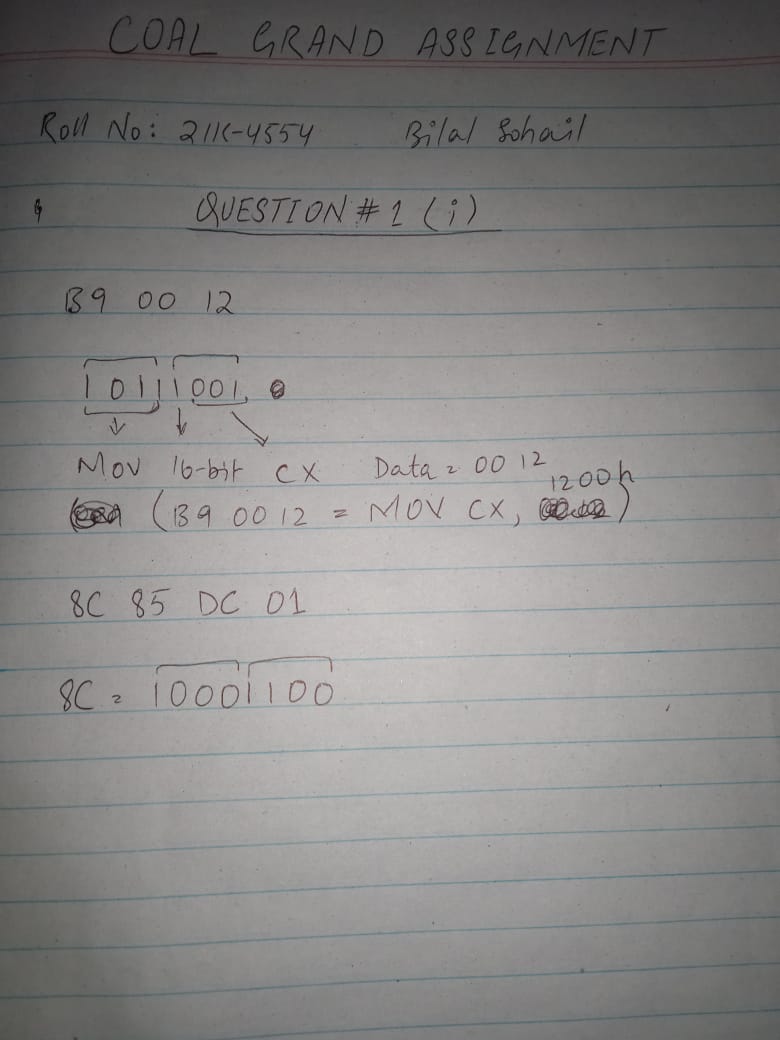 COAL GRAND ASSIGNMENT
Roll No: 21K-4554 Bilal Sohail
QUESTION # 1 (i)
B9 00 12
1011 1001
Mov 16-bit CX Data = 00 12
(B9 00 12 = MOV CX, 1200h)
8C 85 DC 01
8C = 10001100